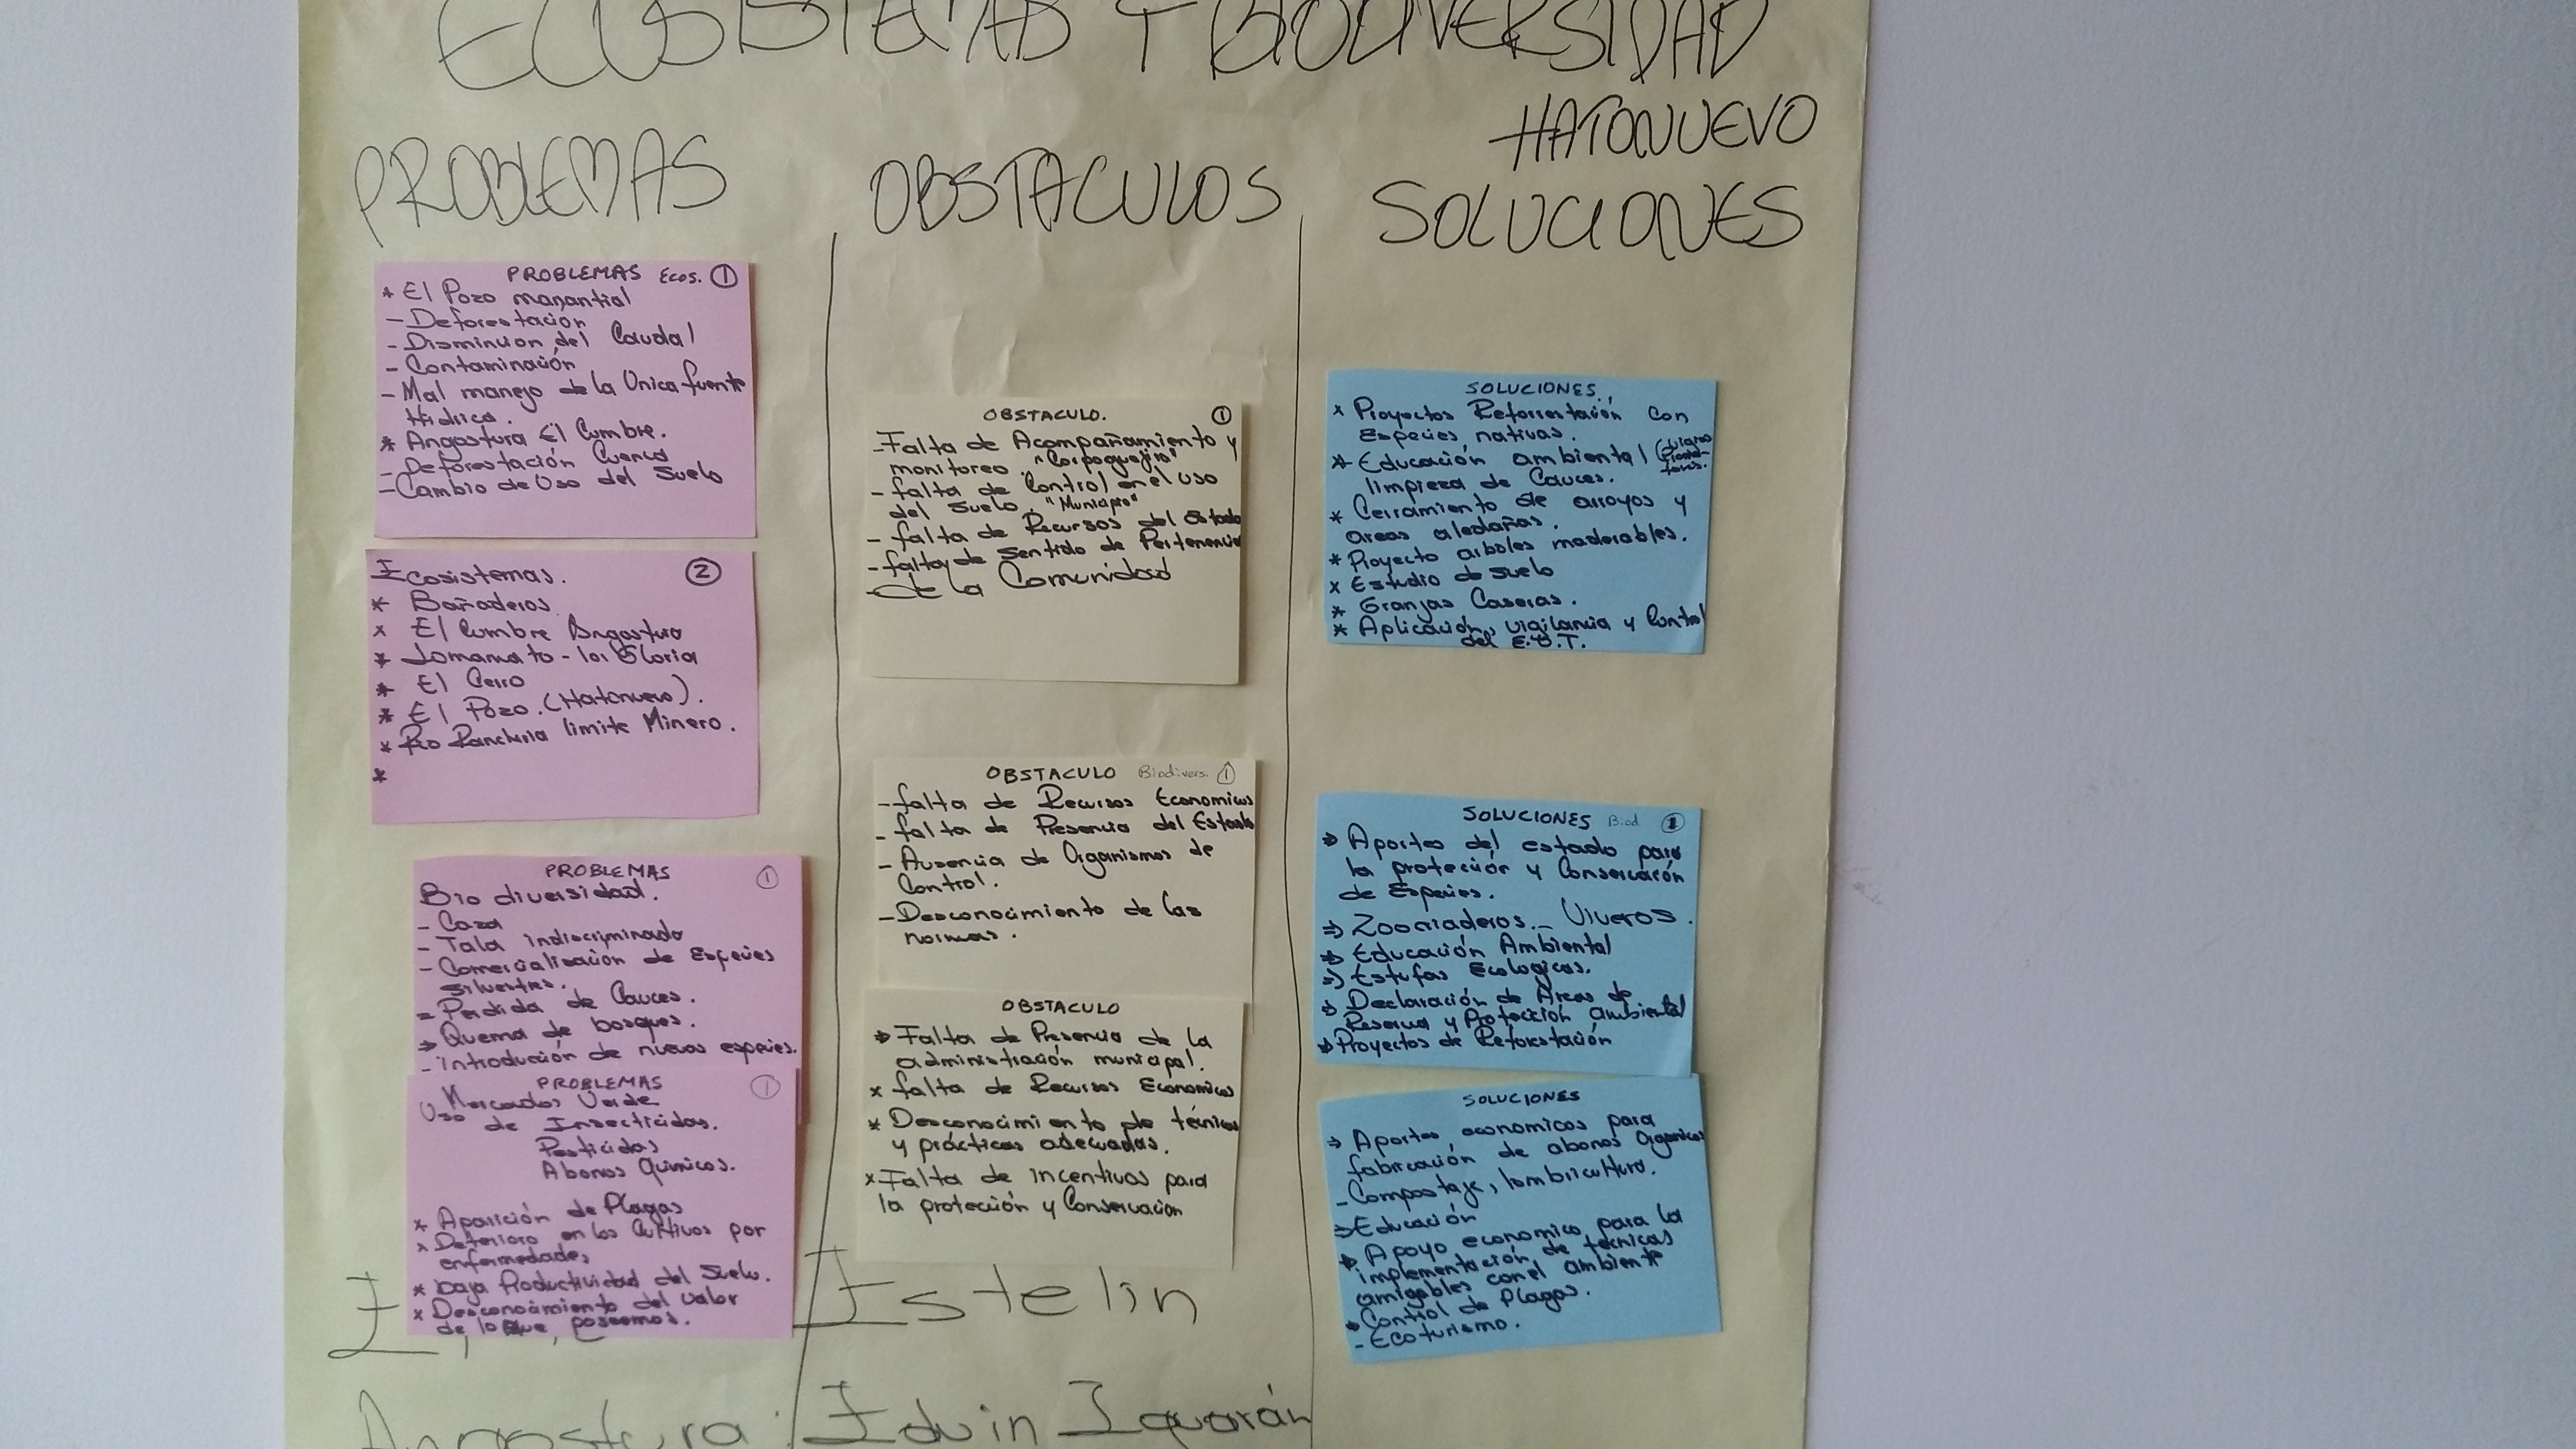 ECOSISTEMAS Y BIODIVERSIDAD
HATONUEVO
PROBLEMAS
OBSTACULOS
SOLUCIONES
PROBLEMAS Ecos. 1
* El Pozo manantial
- Deforestación
- Disminuion del Caudal
- Contaminación
- Mal manejo de la Unica fuente
Hidrica.
* Angostura El Cumbre.
- Deforestación Cuenca
- Cambio de Uso del Suelo
Ecosistemas. 2
* Bañaderos
* El Cumbre Angostura
* Lomamato - la Gloria
* El Cerro
* El Pozo. (Hatonuevo).
* Rio Rancheria limite Minero.
*
PROBLEMAS 1
Bio diversidad.
- Caza
- Tala indiscriminada
- Comercialización de Especies
silvestres.
- Perdida de Cauces.
→ Quema de bosques.
- introducción de nuevas especies.
PROBLEMAS 1
Mercados Verde
Uso de Insecticidas.
Pesticidas
Abonos Quimicos.
* Aparición de Plagas
* Deterioro en los Cultivos por
enfermedades
* baja Productividad del Suelo.
* Desconocimiento del valor
de lo que poseemos.
OBSTACULO. 1
- Falta de Acompañamiento y
monitoreo. "Corpoguajira"
- falta de Control en el uso
del Suelo. "Municipio"
- falta de Recursos del Estado
- falta de Sentido de Pertenencia
de la Comunidad
OBSTACULO Biodivers. 1
- falta de Recursos Economicos
- falta de Presencia del Estado
- Ausencia de Organismos de
Control.
- Desconocimiento de las
normas.
OBSTACULO
* Falta de Presencia de la
administración municipal.
* falta de Recursos Economicos
* Desconocimiento de técnicas
y prácticas adecuadas.
* Falta de incentivos para
la protección y Conservación
SOLUCIONES.
* Proyectos Reforestación con
Especies nativas.
* Educación ambiental
limpieza de Cauces.
* Cerramiento de arroyos y
areas aledañas.
* Proyecto arboles maderables.
* Estudio de suelo
* Granjas Caseras.
* Aplicación, vigilancia y Control
del E.O.T.
SOLUCIONES Biod 1
⇒ Aportes del estado para
la protección y Conservación
de Especies.
⇒ Zoocriaderos. - Viveros.
⇒ Educación Ambiental
⇒ Estufas Ecologicas.
⇒ Declaración de Areas de
Reserva y Protección ambiental
⇒ Proyectos de Reforestación
SOLUCIONES
⇒ Aportes economicos para
fabricación de abonos Organicos
- Compostaje, lombricultura.
⇒ Educación
⇒ Apoyo economico para la
implementación de técnicas
amigables con el ambiente
⇒ Control de Plagas.
- Ecoturismo.
Estelin
Angostura: Eduin Iguarán